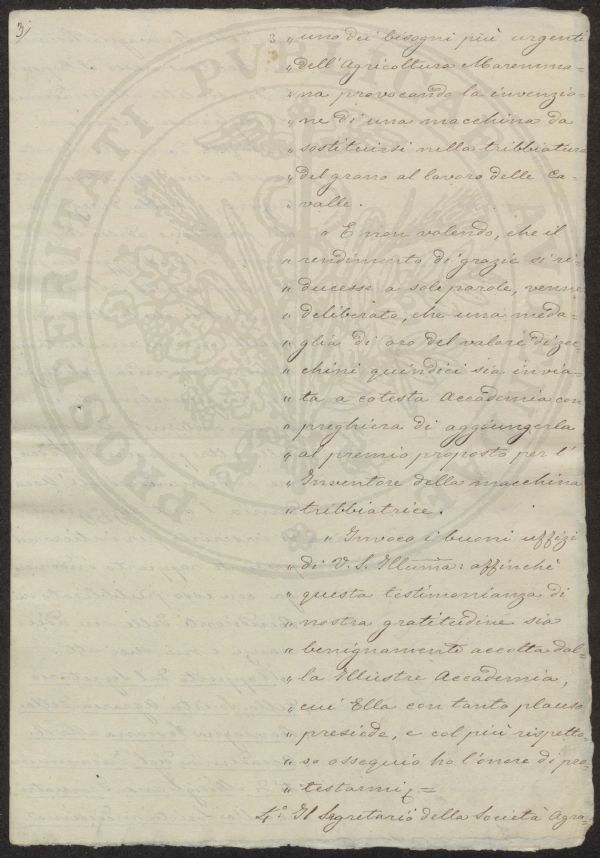 3/
3 „ uno dei bisogni più urgenti
„ dell'Agricoltura Maremma=
„ na provocando la invenzio=
„ ne di una macchina da
„ sostituirsi nella tribbiatura
„ del grano al lavoro delle Ca=
„ valle.
„ E non volendo, che il
„ rendimento di grazie si ri=
„ ducesse a sole parole, venne
„ deliberato, che una meda=
„ glia di oro del valore di zec=
„ chini quindici sia invia=
„ ta a cotesta Accademia con
„ preghiera di aggiungerla
„ al premio proposto per l'
„ Inventore della macchina
„ tribbiatrice.
„ Invoco i buoni uffizi
„ di V. S. Illuma: affinché
„ questa testimonianza di
„ nostra gratitudine sia
„ benignamente accolta dal=
„ la Illustre Accademia,
„ cui Ella con tanto plauso
„ presiede, e col più rispetto=
„ so ossequio ho l'onore di pro=
„ testarmi =
4.° Il Segretario della Società Agra=
PROSPERITATI PUBLICAE AUGENDAE